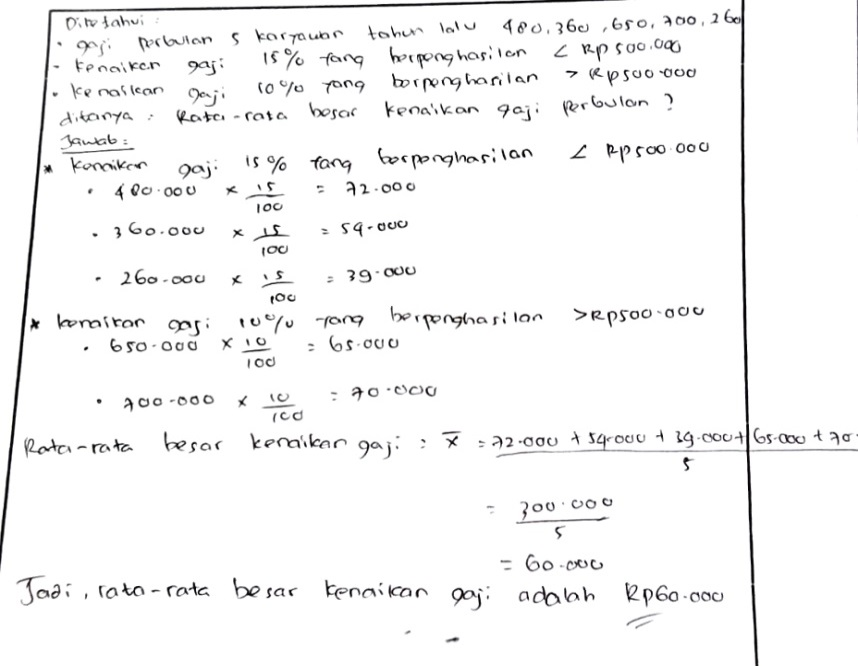 Diketahui :
• gaji perbulan 5 karyawan tahun lalu 480, 360, 650, 700, 260
- Kenaikan gaji 15% yang berpenghasilan < Rp 500.000
• Kenaikan gaji 10% yang berpenghasilan > Rp500.000
ditanya : Rata-rata besar kenaikan gaji perbulan ?
Jawab :
* Kenaikan gaji 15% yang berpenghasilan < Rp500.000
• 480.000 × 15/100 = 72.000
• 360.000 × 15/100 = 54.000
• 260.000 × 15/100 = 39.000
* kenaikan gaji 10% yang berpenghasilan >Rp500.000
• 650.000 × 10/100 = 65.000
• 700.000 × 10/100 = 70.000
Rata-rata besar kenaikan gaji : x̄ = 72.000 + 54.000 + 39.000 + 65.000 + 70.
5
= 300.000
5
= 60.000
Jadi, rata-rata besar kenaikan gaji adalah Rp60.000